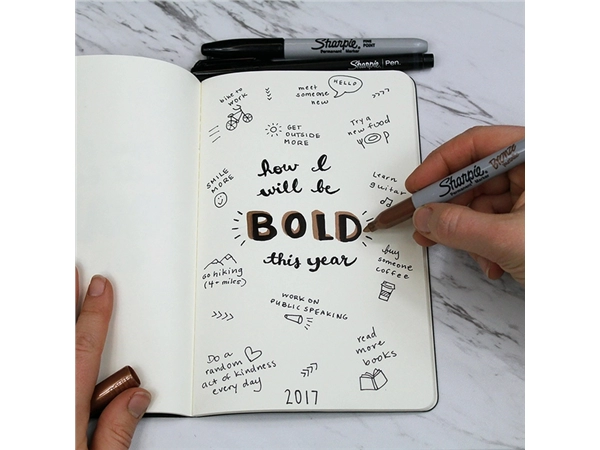 Sharpie
FINE
POINT
Permanent Marker
Sharpie Pen
bike to
work
meet
someone
new
HELLO
GET
OUTSIDE
MORE
Try a
new food
SMILE
MORE
how I
will be
BOLD
this year
Learn
guitar
Sharpie
Permanent Marker
Bronze
buy
someone
coffee
go hiking
(4+ miles)
WORK ON
PUBLIC SPEAKING
Do a
random
act of kindness
every day
read
more
books
2017